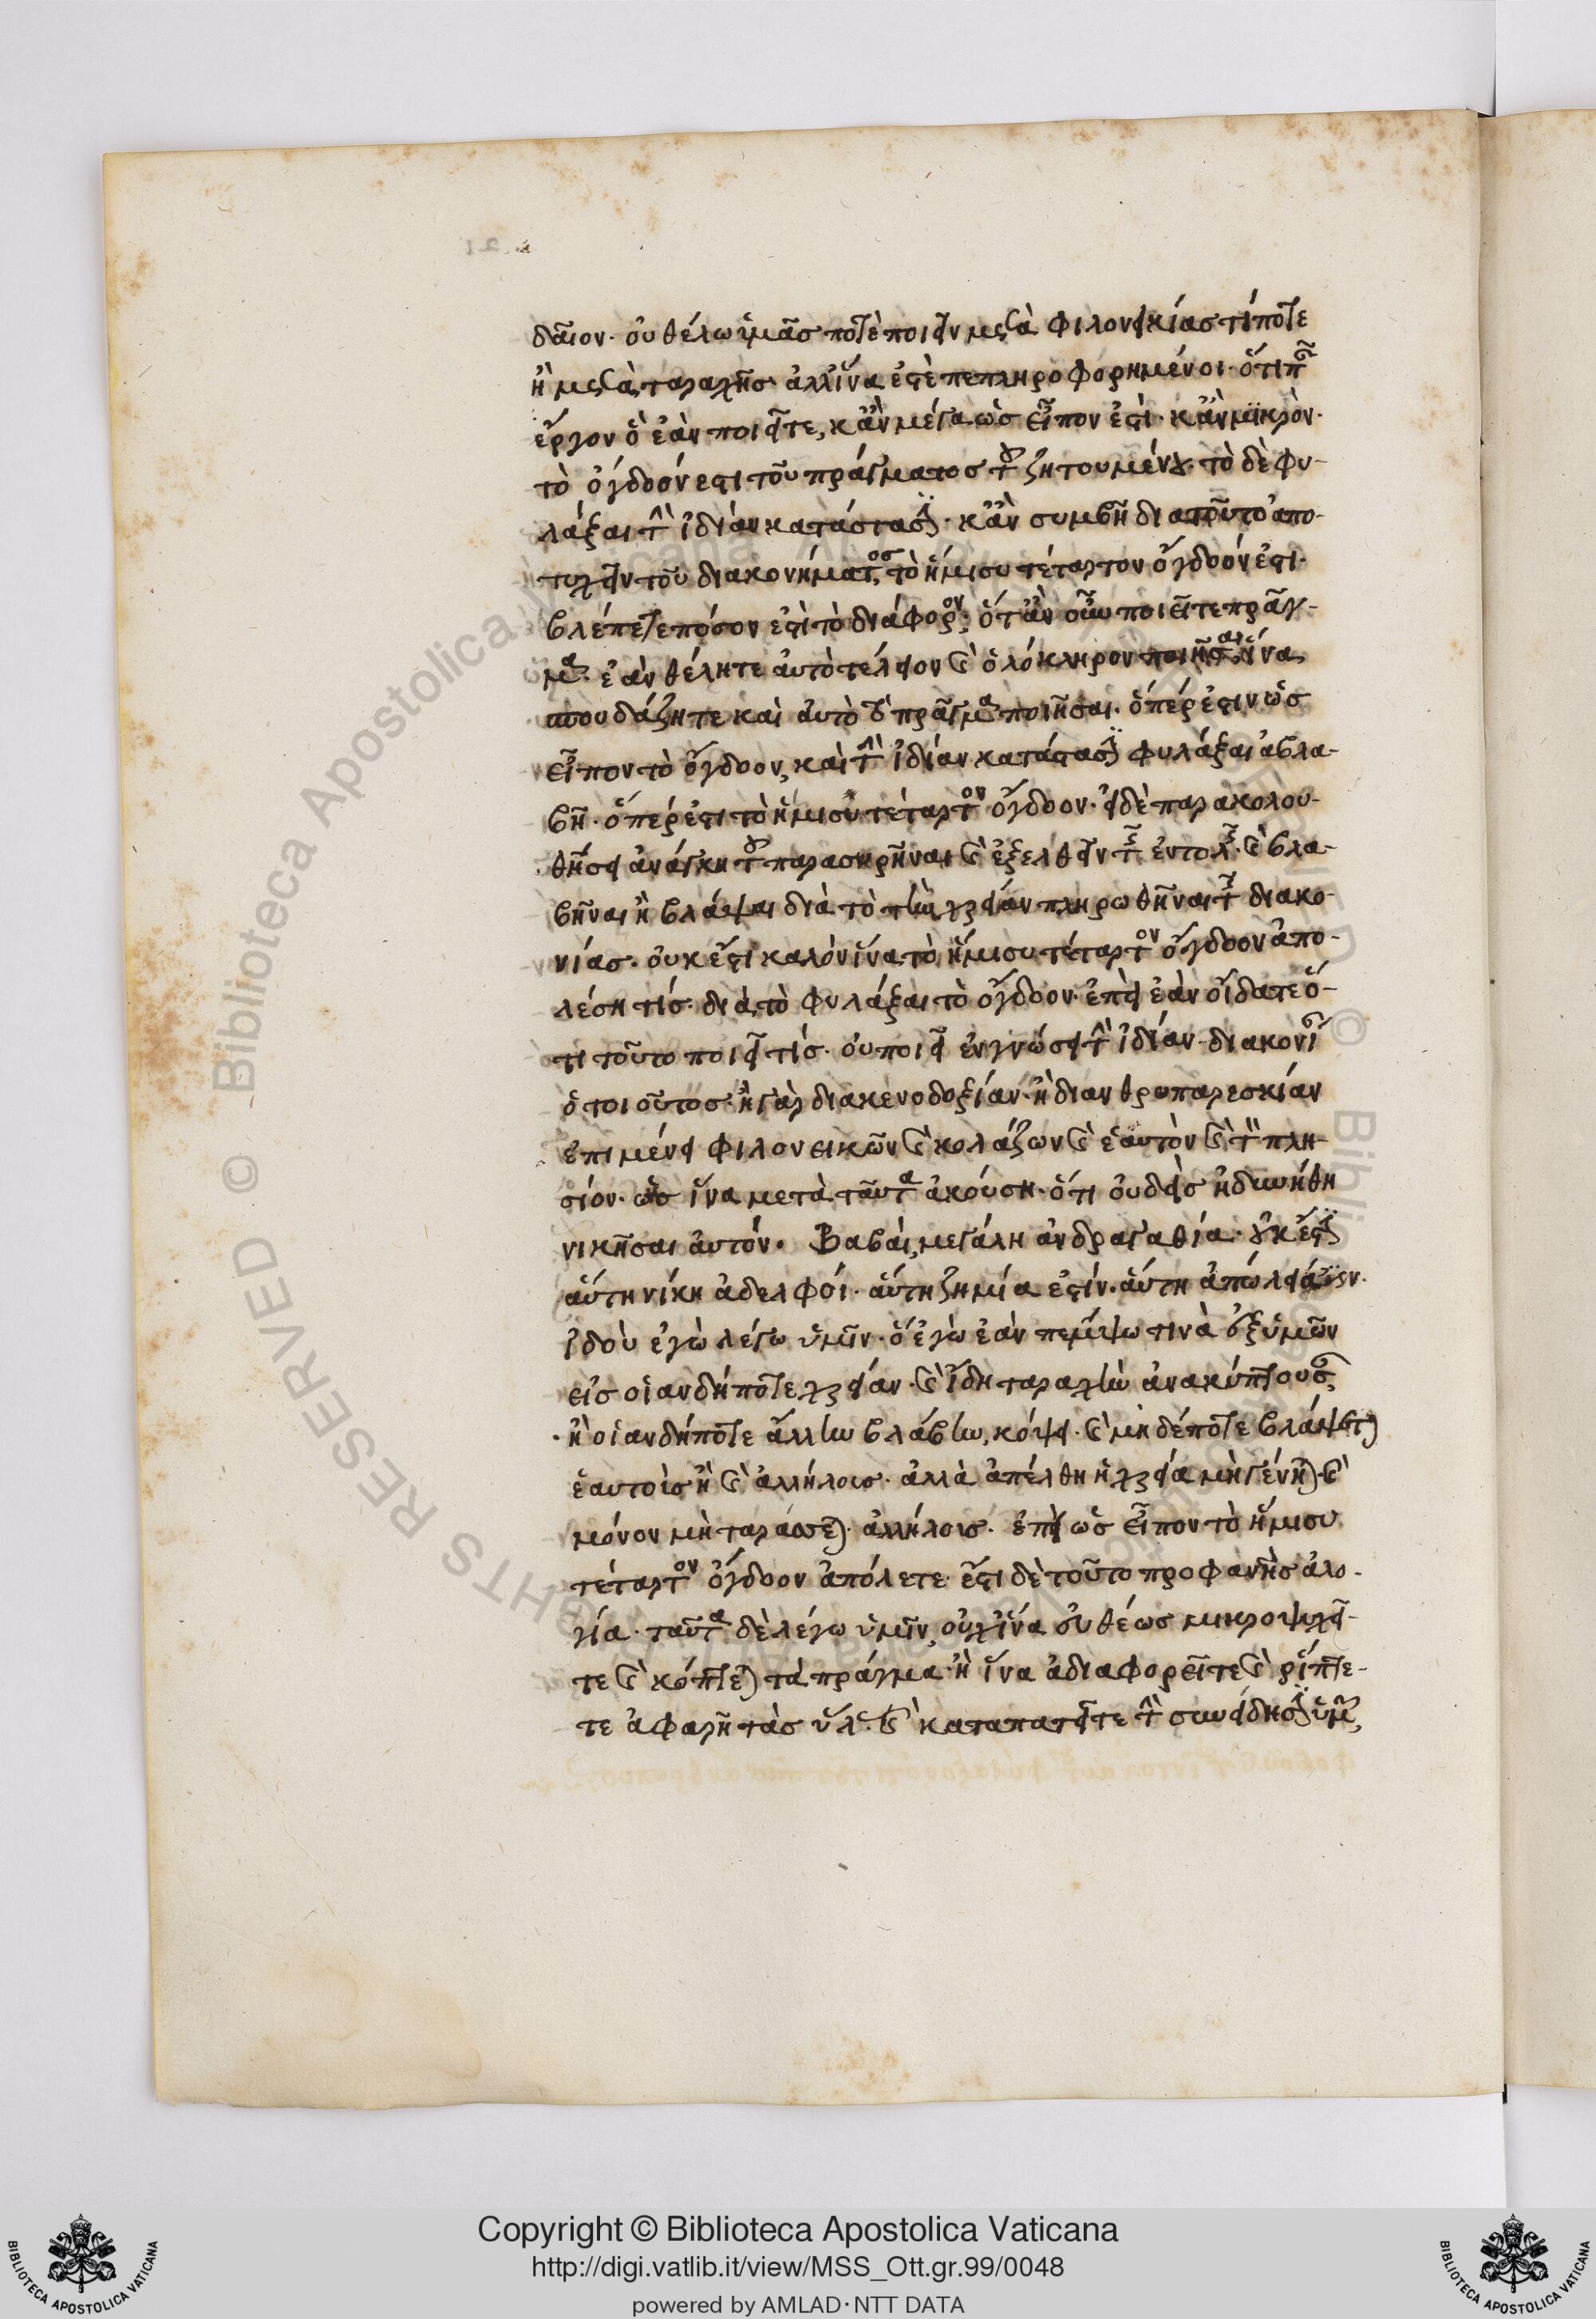 21
δαῖον· οὐ θέλω ὑμᾶς ποτὲ ποιεῖν μετὰ φιλονεικίας τίποτε
ἢ μετὰ ταραχῆς· ἀλλ' ἵνα ἐστὲ πεπληροφορημένοι· ὅτι πᾶν
ἔργον ὃ ἐὰν ποιεῖτε, κἂν μέγα ὡς εἶπον ἐστὶ· κἂν μικρὸν·
τὸ ὄγδοόν εστι τοῦ πράγματος τοῦ ζητουμένου· τὸ δὲ φυ-
λάξαι τὴν ἰδίαν κατάστασιν· κἂν συμβῆ δια τοῦτο ἀπο-
τυχεῖν τοῦ διακονήματος, τὸ ἥμισυ τέταρτον ὄγδοόν ἐστι·
βλέπετε πόσον ἐστὶ τὸ διάφορον· ὅτἂν οὖν ποιεῖτε πρᾶγ-
μα· ἐὰν θέλητε ἀυτὸ τέλειον καὶ ὁλόκληρον ποιῆσαι, ἵνα
σπουδάζητε καὶ ἀυτὸ τὸ πρᾶγμα ποιῆσαι· ὅπέρ ἐστιν ὡς
εἶπον τὸ ὄγδοον, καὶ τὴν ἰδίαν κατάστασιν φυλάξαι ἀβλα-
βῆ· ὅπέρ ἐστι τὸ ἥμισυ τέταρτον ὄγδοον· εἰ δὲ παρακολου-
θήσει ἀνάγκη τοῦ παρασυρῆναι καὶ ἐξελθεῖν τῆς ἐντολῆς· καὶ βλα-
βῆναι ἢ βλάψαι διὰ τὸ τὴν χρείαν πληρωθῆναι τῆς διακο-
νίας· οὐκ ἔστι καλὸν ἵνα τὸ ἥμισυ τέταρτον ὄγδοον ἀπο-
λέση τίς· διὰ τὸ φυλάξαι τὸ ὄγδοον· ἐπεὶ ἐὰν οἴδατε ὅ-
τι τοῦτο ποιεῖ τίς· οὐ ποιεῖ ἐν γνώσει τὴν ἰδίαν διακονίαν
ὁ τοιοῦτος· ἢ γὰρ δια κενοδοξίαν· ἢ δι ανθρωπαρεσκίαν
ἐπιμένει φιλονεικῶν καὶ κολάζων καὶ ἑαυτὸν καὶ τὸν πλη-
σίον· ὡς ἵνα μετὰ ταῦτα ἀκούση· ὅτι οὐδεὶς ἠδυνήθη
νικῆσαι ἀυτόν· Βαβαὶ, μεγάλη ἀνδραγαθία· οὐκ ἔστιν
αὕτη νίκη ἀδελφοί· αὕτη ζημία ἐστίν· αὕτη ἀπώλειά ἐστιν·
ἰδοὺ ἐγὼ λέγω ὑμῖν· ὅ ἐγὼ ἐὰν πέμψω τινὰ ἐξ ὑμῶν
εἰς οἱανδήποτε χρείαν· καὶ ἴδη ταραχὴν ἀνακύπτουσαν,
ἢ οἱανδήποτε ἄλλην βλάβην, κόψει· καὶ μηδέποτε βλάψητε
ἑαυτοὶς ἢ καὶ ἀλλήλοις· ἀλλὰ ἀπέλθη ἡ χρεία μὴ γένηται· καὶ
μόνον μὴ ταράσσεται ἀλλήλοις· ἐπεὶ ὡς εἶπον τὸ ἥμισυ
τέταρτον ὄγδοον ἀπόλετε· ἔστι δὲ τοῦτο προφανὴς ἀλο-
γία· ταῦτα δὲ λέγω ὑμῖν, οὐχ ἵνα εὐθέως μικροψυχεῖ-
τε καὶ κόπτεται τὰ πράγμα· ἢ ἵνα ἀδιαφορεῖτε καὶ ρίπτε-
τε ἀφαρῆ τὰς ὕλας· καὶ καταπατεῖτε τὴν συνείδησιν ὑμῶν,
Copyright © Biblioteca Apostolica Vaticana
http://digi.vatlib.it/view/MSS_Ott.gr.99/0048
powered by AMLAD·NTT DATA
BIBLIOTECA APOSTOLICA VATICANA
BIBLIOTECA APOSTOLICA VATICANA